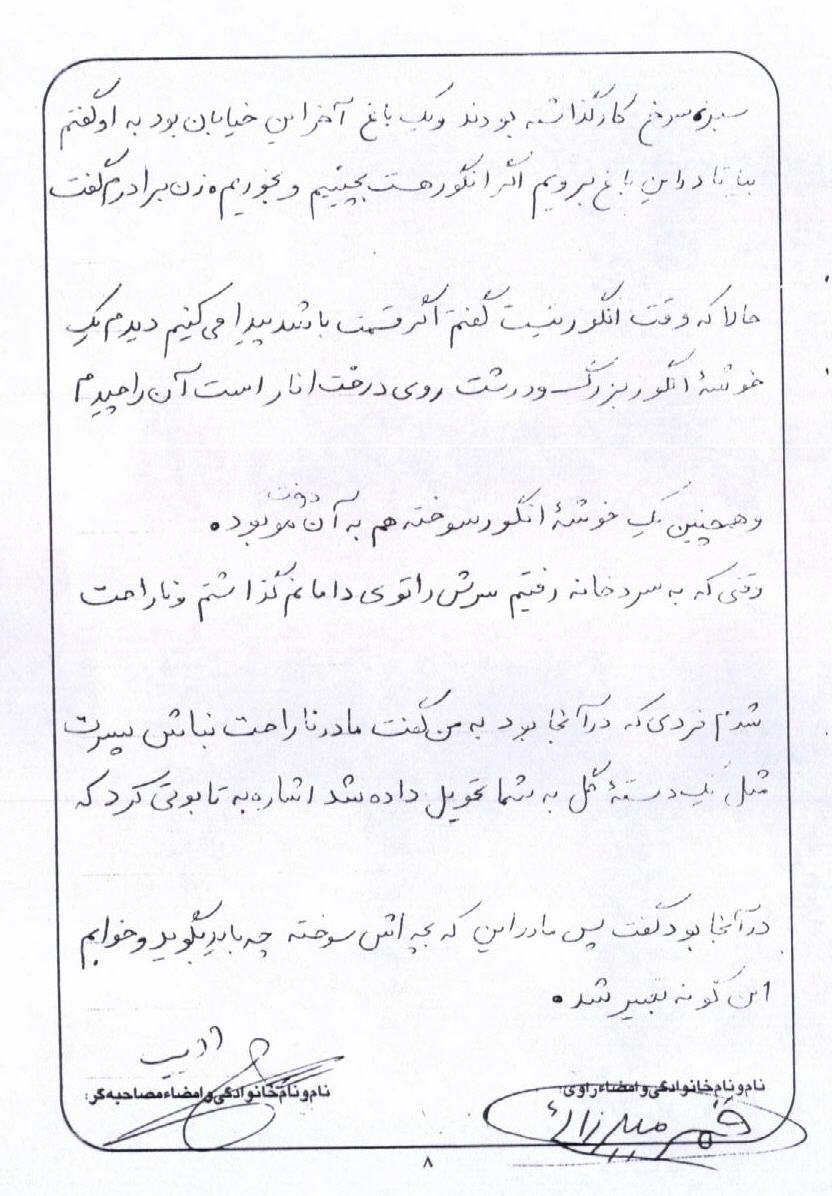 سبزه سرخ کار گذاشته بودند و یک باغ آخر این خیابان بود به او گفتم
بیا تا در این باغ برویم اگر انگور هست بچینیم و بخوریم. زن برادرم گفت
حالا که وقت انگور نیست گفتم اگر قسمت باشد پیدا می کنیم دیدم یک
خوشهٔ انگور بزرگ و درشت روی درخت انار است آن را چیدم
و همچنین یک خوشهٔ انگور سوخته هم به آن درخت بود.
وقتی که به سردخانه رفتیم سرش را توی دامانم گذاشتم و ناراحت
شدم فردی که در آنجا بود به من گفت مادر ناراحت نباش پسرت
مثل یک دستهٔ گل به شما تحویل داده شد اشاره به تابوتی کرد که
در آنجا بود گفت پس مادر این که بچه اش سوخته چه باید بگوید و خوابم
این گونه تعبیر شد.
ادیب
نام و نام خانوادگی و امضاء راوی:
نام و نام خانوادگی و امضاء مصاحبه گر:
قمر میرزائی
۸